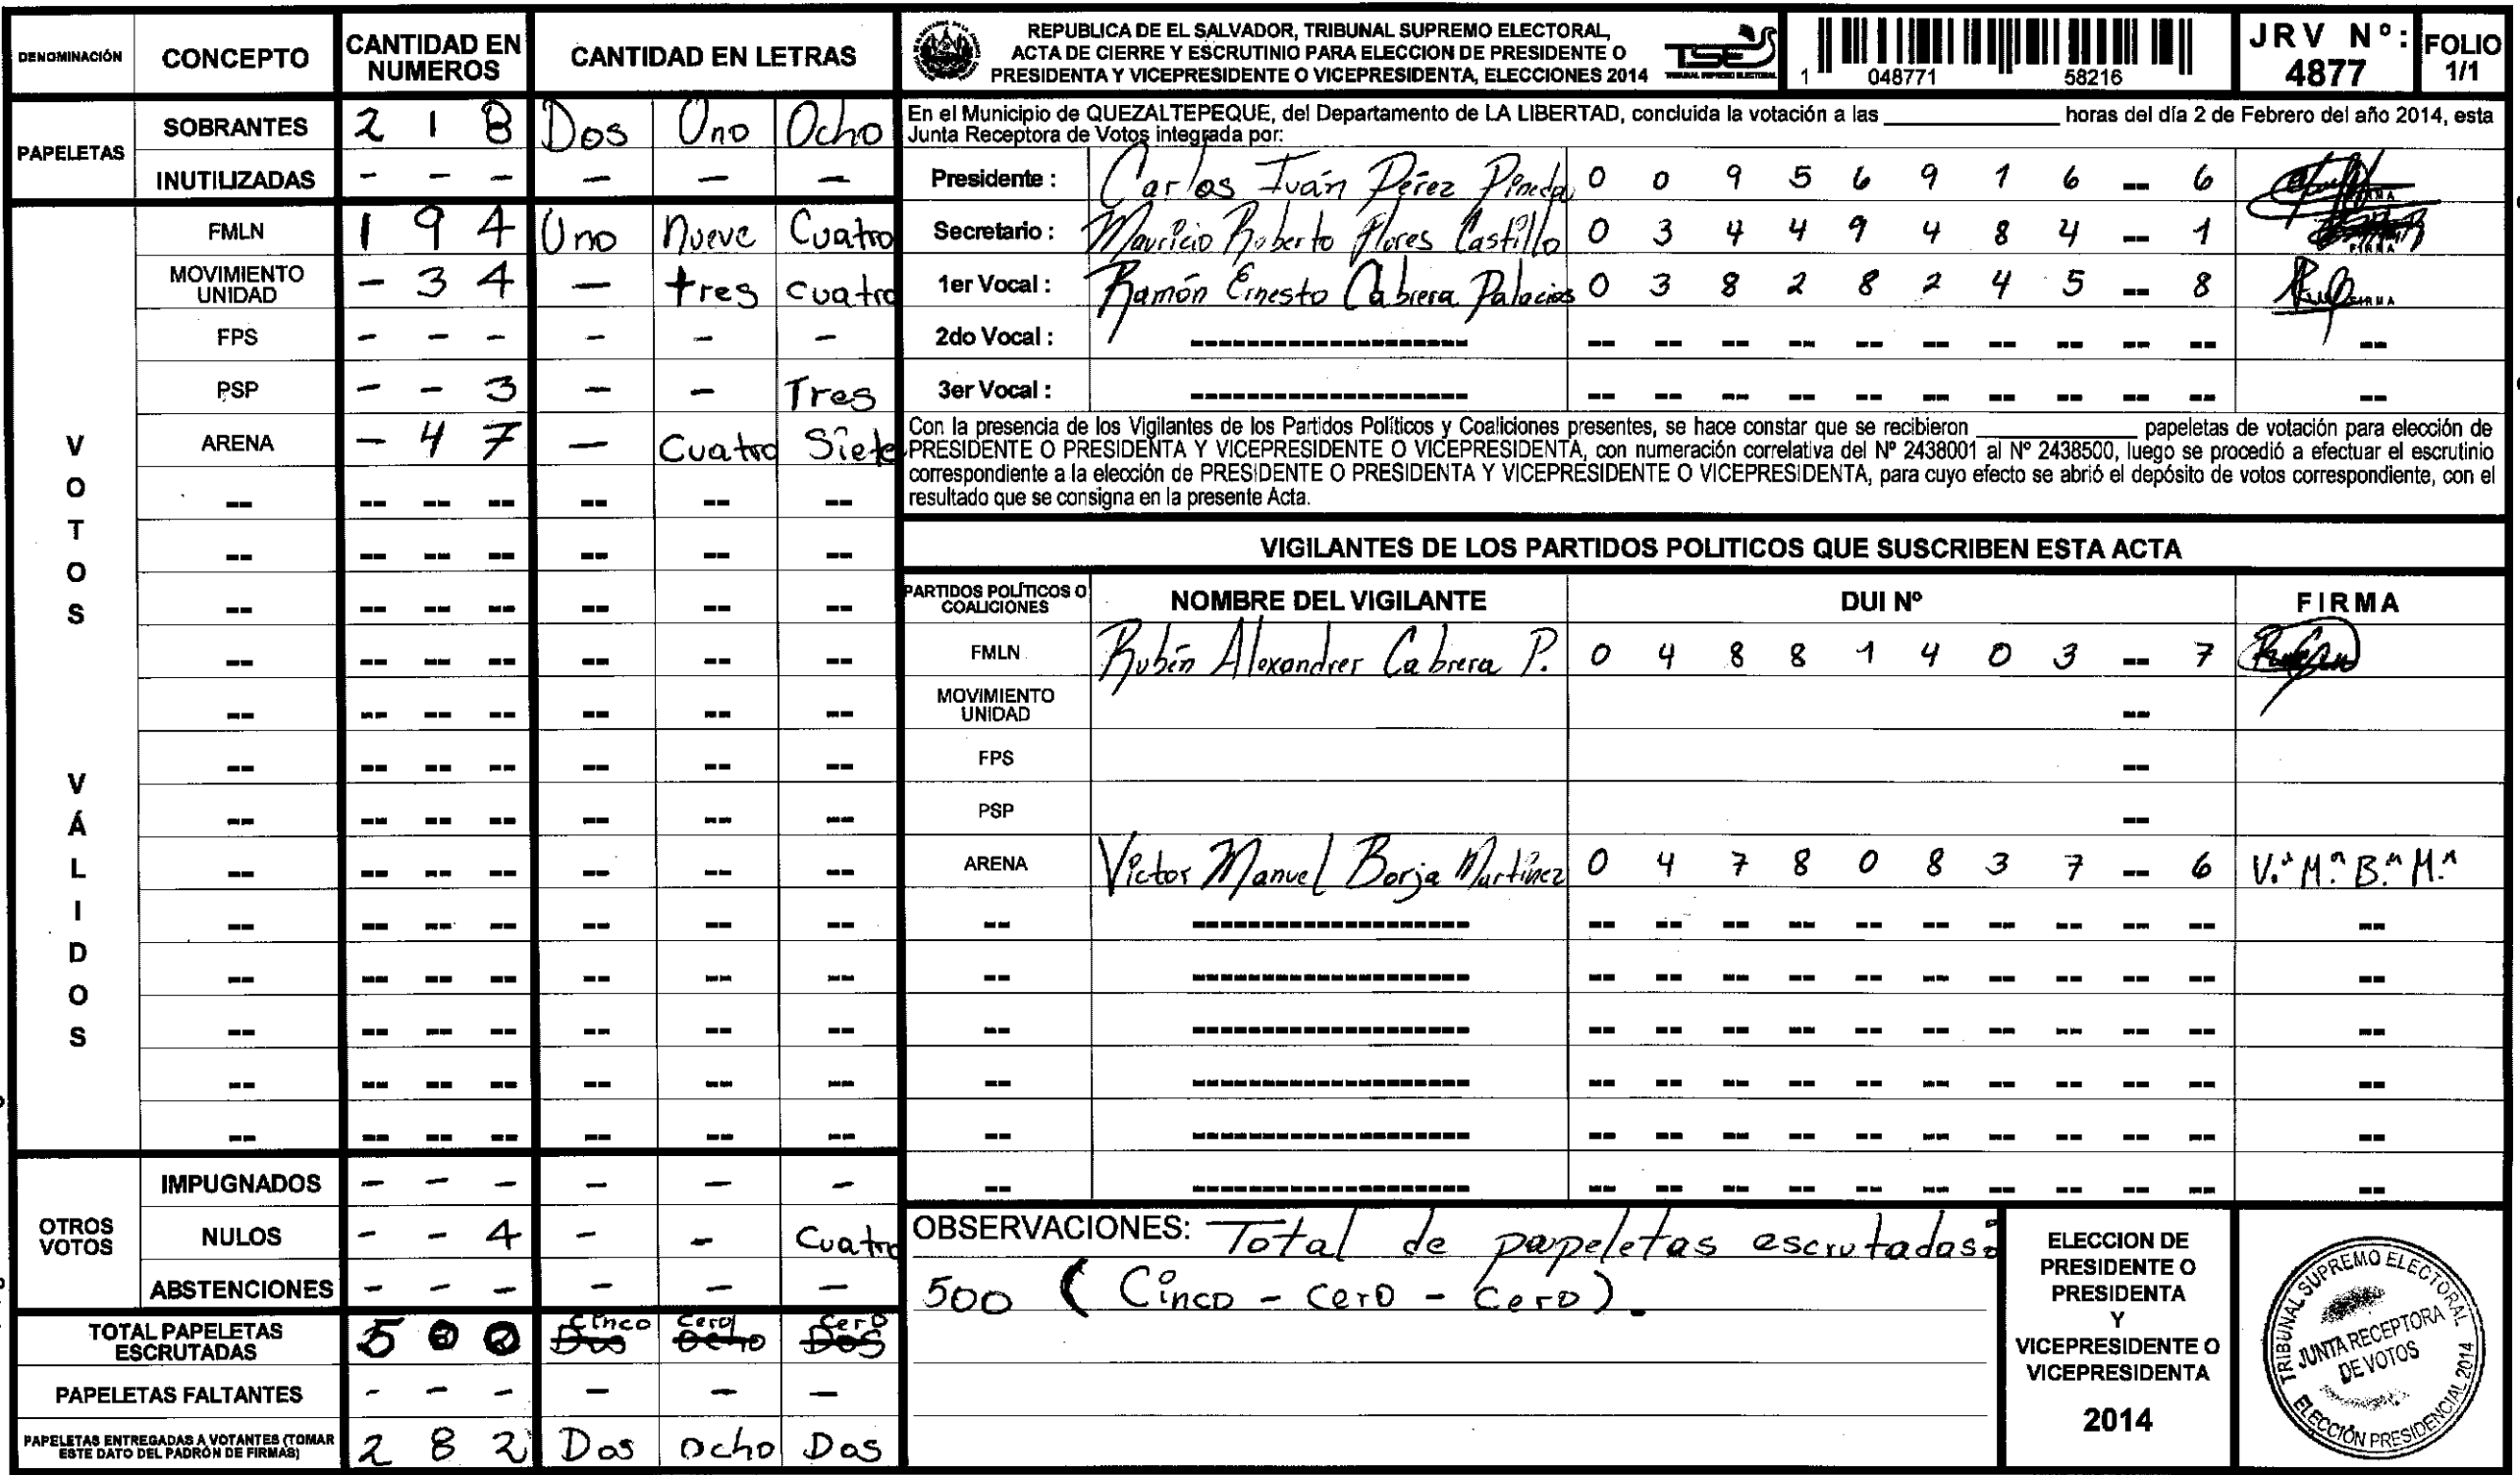 DENOMINACIÓN CONCEPTO CANTIDAD EN NUMEROS CANTIDAD EN LETRAS
PAPELETAS
SOBRANTES 2 1 8 Dos Uno Ocho
INUTILIZADAS - - - - - -
VOTOS VÁLIDOS
FMLN 1 9 4 Uno nueve Cuatro
MOVIMIENTO UNIDAD - 3 4 - tres cuatro
FPS - - - - - -
PSP - - 3 - - Tres
ARENA - 4 7 - Cuatro Siete
-- -- -- -- -- -- --
-- -- -- -- -- -- --
-- -- -- -- -- -- --
-- -- -- -- -- -- --
-- -- -- -- -- -- --
-- -- -- -- -- -- --
-- -- -- -- -- -- --
-- -- -- -- -- -- --
-- -- -- -- -- -- --
-- -- -- -- -- -- --
-- -- -- -- -- -- --
-- -- -- -- -- -- --
-- -- -- -- -- -- --
OTROS VOTOS
IMPUGNADOS - - - - - -
NULOS - - 4 - - Cuatro
ABSTENCIONES - - - - - -
TOTAL PAPELETAS ESCRUTADAS 5 0 0 Cinco Cero Cero
Dos Ocho Dos
PAPELETAS FALTANTES - - - - - -
PAPELETAS ENTREGADAS A VOTANTES (TOMAR ESTE DATO DEL PADRÓN DE FIRMAS) 2 8 2 Dos ocho Dos
REPUBLICA DE EL SALVADOR, TRIBUNAL SUPREMO ELECTORAL,
ACTA DE CIERRE Y ESCRUTINIO PARA ELECCION DE PRESIDENTE O
PRESIDENTA Y VICEPRESIDENTE O VICEPRESIDENTA, ELECCIONES 2014
TSE
TRIBUNAL SUPREMO ELECTORAL
1 048771 58216
JRV Nº: 4877
FOLIO 1/1
En el Municipio de QUEZALTEPEQUE, del Departamento de LA LIBERTAD, concluida la votación a las ____________ horas del día 2 de Febrero del año 2014, esta
Junta Receptora de Votos integrada por:
Presidente : Carlos Iván Pérez Pineda 0 0 9 5 6 9 1 6 -- 6 FIRMA
Secretario : Mauricio Roberto Flores Castillo 0 3 4 4 9 4 8 4 -- 1 FIRMA
1er Vocal : Ramón Ernesto Cabrera Palacios 0 3 8 2 8 2 4 5 -- 8 FIRMA
2do Vocal : ------------------- -- -- -- -- -- -- -- -- -- -- --
3er Vocal : ------------------- -- -- -- -- -- -- -- -- -- -- --
Con la presencia de los Vigilantes de los Partidos Políticos y Coaliciones presentes, se hace constar que se recibieron ____________ papeletas de votación para elección de
PRESIDENTE O PRESIDENTA Y VICEPRESIDENTE O VICEPRESIDENTA, con numeración correlativa del Nº 2438001 al Nº 2438500, luego se procedió a efectuar el escrutinio
correspondiente a la elección de PRESIDENTE O PRESIDENTA Y VICEPRESIDENTE O VICEPRESIDENTA, para cuyo efecto se abrió el depósito de votos correspondiente, con el
resultado que se consigna en la presente Acta.
VIGILANTES DE LOS PARTIDOS POLITICOS QUE SUSCRIBEN ESTA ACTA
PARTIDOS POLÍTICOS O COALICIONES NOMBRE DEL VIGILANTE DUI Nº FIRMA
FMLN Rubén Alexandrer Cabrera P. 0 4 8 8 1 4 0 3 -- 7
MOVIMIENTO UNIDAD --
FPS --
PSP --
ARENA Víctor Manuel Borja Martínez 0 4 7 8 0 8 3 7 -- 6 V.ª M.ª B.ª M.ª
-- ------------------- -- -- -- -- -- -- -- -- -- -- --
-- ------------------- -- -- -- -- -- -- -- -- -- -- --
-- ------------------- -- -- -- -- -- -- -- -- -- -- --
-- ------------------- -- -- -- -- -- -- -- -- -- -- --
-- ------------------- -- -- -- -- -- -- -- -- -- -- --
-- ------------------- -- -- -- -- -- -- -- -- -- -- --
OBSERVACIONES: Total de papeletas escrutadas:
500 (Cinco - cero - cero).
ELECCION DE
PRESIDENTE O
PRESIDENTA
Y
VICEPRESIDENTE O
VICEPRESIDENTA
2014
TRIBUNAL SUPREMO ELECTORAL
JUNTA RECEPTORA
DE VOTOS
ELECCIÓN PRESIDENCIAL 2014